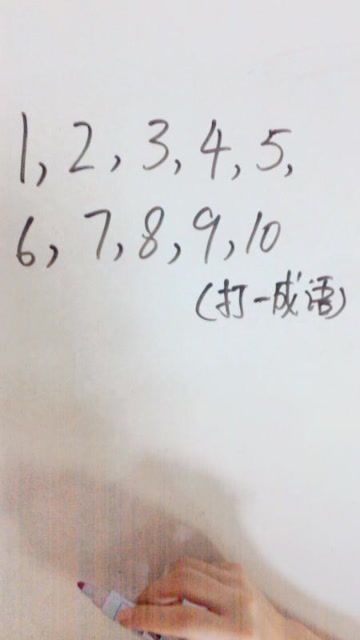 1, 2, 3, 4, 5,
6, 7, 8, 9, 10
(打一成语)